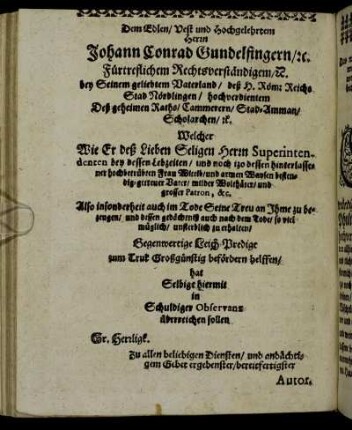 Dem Edlen/ Vest und Hochgelehrtem
Herrn
Johann Conrad Gundelfingern/ ꝛc.
Fürtreflichem Rechtsverständigem/ ꝛc.
bey Seinem geliebtem Vaterland/ deß H. Röm: Reichs
Stad Nördlingen/ hochverdientem
Deß geheimen Raths/ Cammerern/ Stad-Amman/
Scholarchen/ ꝛc.
Welcher
Wie Er deß Lieben Seligen Herrn Superinten-
denten bey dessen Lebzeiten/ und noch itzo dessen hinterlasse-
ner hochbetrübten Frau Wittib/ und armen Waysen bestän-
dig-getreuer Vater/ milder Wolthäter/ und
grosser Patron, &c.
Also insonderheit auch im Tode Seine Treu an Ihme zu be-
zeugen/ und dessen gedächtniß auch nach dem Tode/ so viel
müglich/ unsterblich zu erhalten/
Gegenwertige Leich-Predige
zum Truk Großgünstig befördern helffen/
hat
Selbige hiermit
in
Schuldiger Observanz
überreichen sollen
Gr. Herrligk.
Zu allen beliebigen Diensten/ und andächti-
gem Gebet ergebenster/ bereitfertigster
Autor.